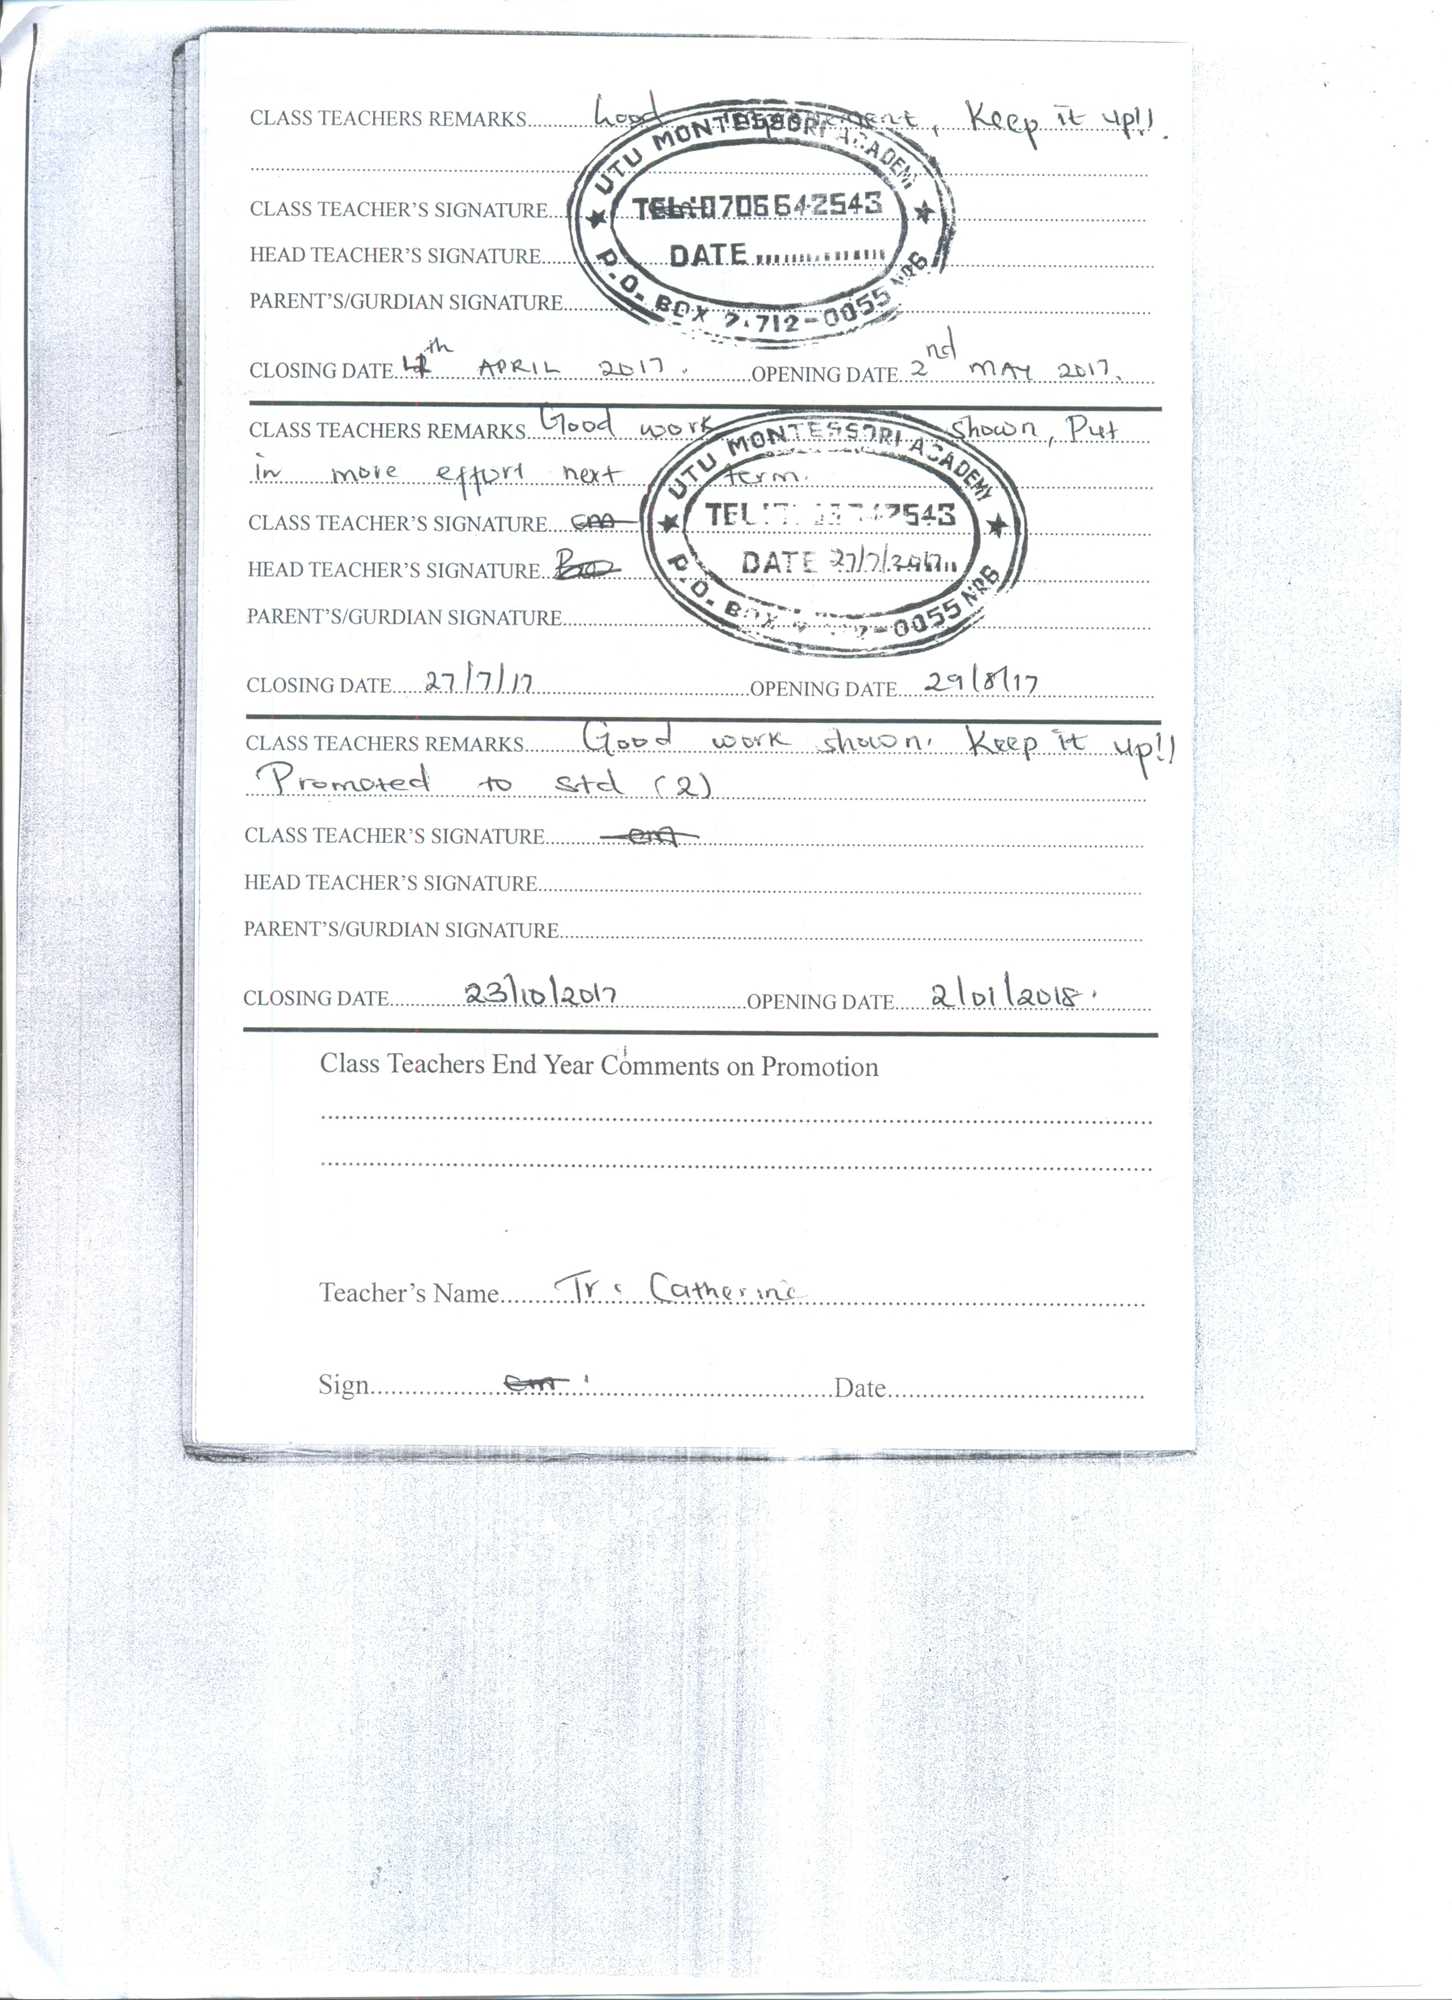 CLASS TEACHERS REMARKS Good improvement, Keep it up!!
UTU MONTESSORI ACADEMY
CLASS TEACHER'S SIGNATURE
TEL:0706642543
HEAD TEACHER'S SIGNATURE
DATE
PARENT'S/GURDIAN SIGNATURE
P.O. BOX 712-0055 NRB
CLOSING DATE 4th APRIL 2017. OPENING DATE 2nd MAY 2017.
CLASS TEACHERS REMARKS Good work shown, Put
in more effort next term.
UTU MONTESSORI ACADEMY
CLASS TEACHER'S SIGNATURE
TEL 543
HEAD TEACHER'S SIGNATURE
DATE 27/7/2017
PARENT'S/GURDIAN SIGNATURE
P.O. BOX -0055 NRB
CLOSING DATE 27/7/17 OPENING DATE 29/8/17
CLASS TEACHERS REMARKS Good work shown. Keep it up!!
Promoted to std (2)
CLASS TEACHER'S SIGNATURE
HEAD TEACHER'S SIGNATURE
PARENT'S/GURDIAN SIGNATURE
CLOSING DATE 23/10/2017 OPENING DATE 2/01/2018.
Class Teachers End Year Comments on Promotion
Teacher's Name Tr: Catherine
Sign Date